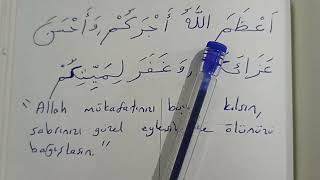 أَعْظَمَ اللَّهُ أَجْرَكُمْ وَأَحْسَ
عَزَائَ وَغَفَرَ لِمَيِّتِكُمْ
"Allah mükafatınızı kılsın,
sabrınızı güzel eylesin ölünüzü
bağışlasın."